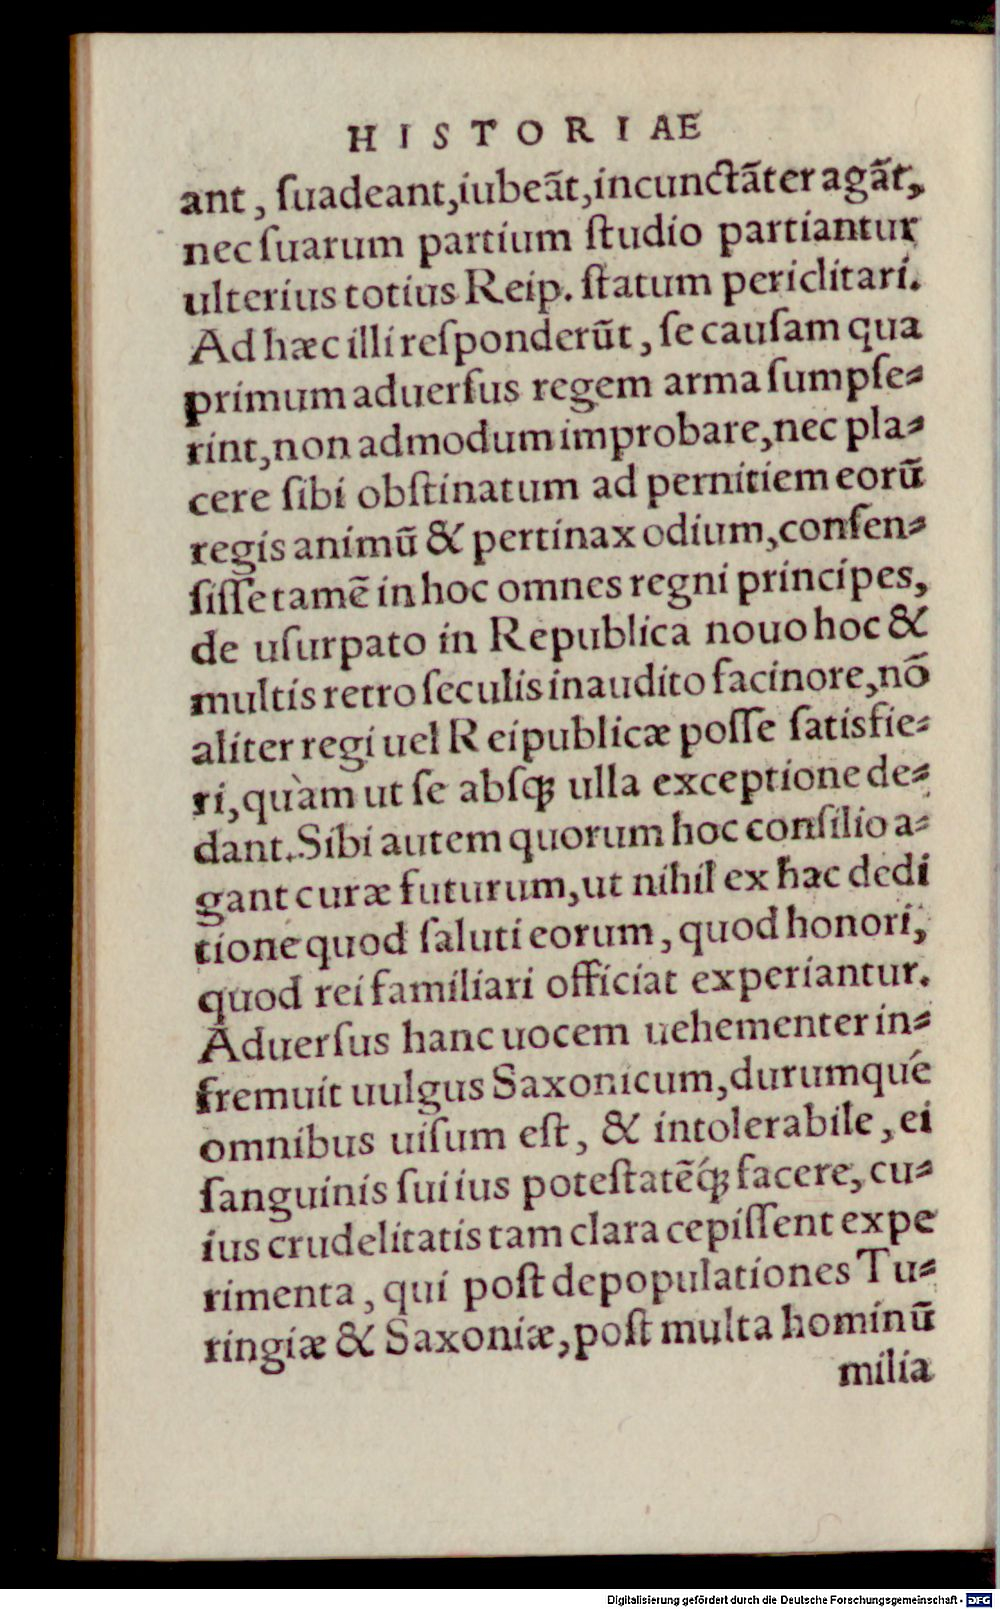 HISTORIAE
ant, ſuadeant,iubeãt,incunctãter agãt,
nec ſuarum partium ſtudio partiantur
ulterius totius Reip. ſtatum periclitari.
Ad hæc illi reſponderũt, ſe cauſam qua
primum aduerſus regem arma ſumpſe⸗
rint,non admodum improbare,nec pla⸗
cere ſibi obſtinatum ad pernitiem eorũ
regis animũ & pertinax odium,conſen⸗
ſiſſe tamẽ in hoc omnes regni principes,
de uſurpato in Republica nouo hoc &
multis retro ſeculis inaudito facinore,nõ
aliter regi uel Reipublicæ poſſe ſatisfie⸗
ri,quàm ut ſe abſqꝫ ulla exceptione de⸗
dant.Sibi autem quorum hoc conſilio a⸗
gant curæ futurum,ut nihil ex hac dedi
tione quod ſaluti eorum, quod honori,
quod rei familiari officiat experiantur.
Aduerſus hanc uocem uehementer in⸗
fremuit uulgus Saxonicum,durumqué
omnibus uiſum eſt, & intolerabile, ei
ſanguinis ſui ius poteſtatẽq́ꝫ facere, cu⸗
ius crudelitatis tam clara cepiſſent expe
rimenta, qui poſt depopulationes Tu⸗
ringiæ & Saxoniæ,poſt multa hominũ
milia
Digitalisierung gefördert durch die Deutsche Forschungsgemeinschaft - DFG